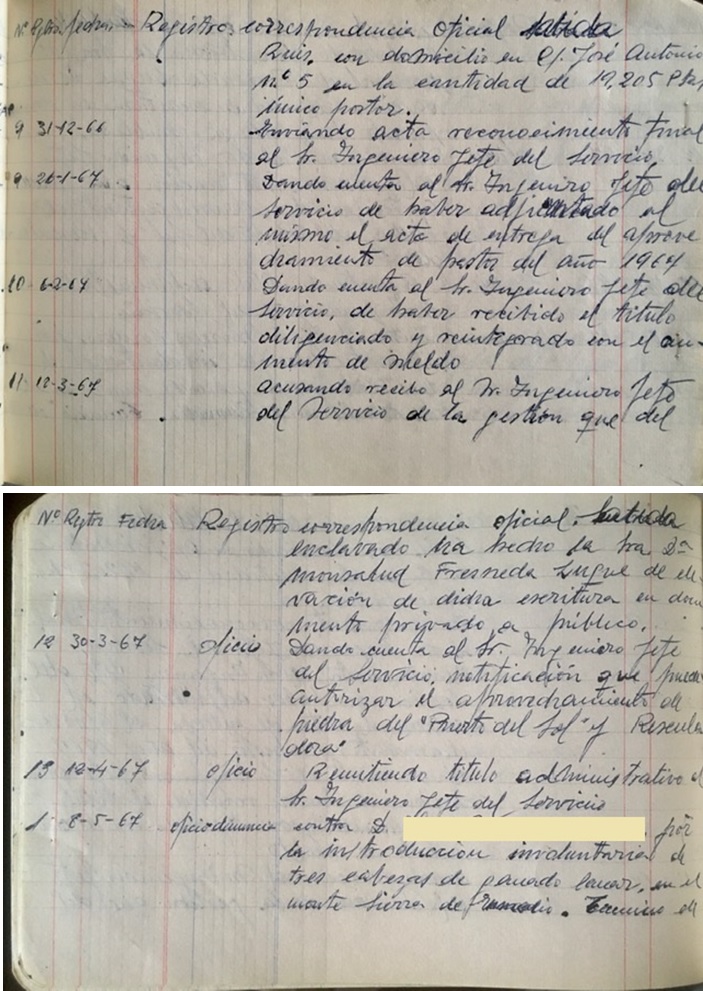 Nº Rgtro fecha. - Registro correspondencia oficial salida
Ruis, con domicilio en C/. José Antonio
nº 5 en la cantidad de 19,205 Ptas
único postor.
9 31-12-66 Enviando acta reconocimiento final
al Sr. Ingeniero Jefe del Servicio.
9 26-1-67 Dando cuenta al Sr. Ingeniero Jefe del
Servicio de haber el
mismo el acta de entrega del aprove
chamiento de pastos del año 1967
10 6-2-67 Dando cuenta al Sr. Ingeniero Jefe del
Servicio, de haber recibido el título
diligenciado y reintegrado con el au-
mento de sueldo
11 12-3-67 acusando recibo al Sr. Ingeniero Jefe
del Servicio de la gestión que del
Nº Rgtro Fecha Registro correspondencia oficial. Salida
enclavado ha hecho la Sra Dª
Monsalud Fresneda Luque de ele-
vación de dicha escritura en docu
mento privado a público.
12 30-3-67 oficio Dando cuenta al Sr. Ingeniero Jefe
del Servicio, notificación que puede
autorizar el aprovechamiento de
piedra del "Puerto del Sol" y Rascula
dora"
13 12-4-67 oficio Remitiendo título administrativo al
Sr. Ingeniero Jefe del Servicio
1 8-5-67 oficio denuncia contra D. por
la introducción involuntaria de
tres cabezas de ganado lanar, en el
monte Sierra de . Termino de